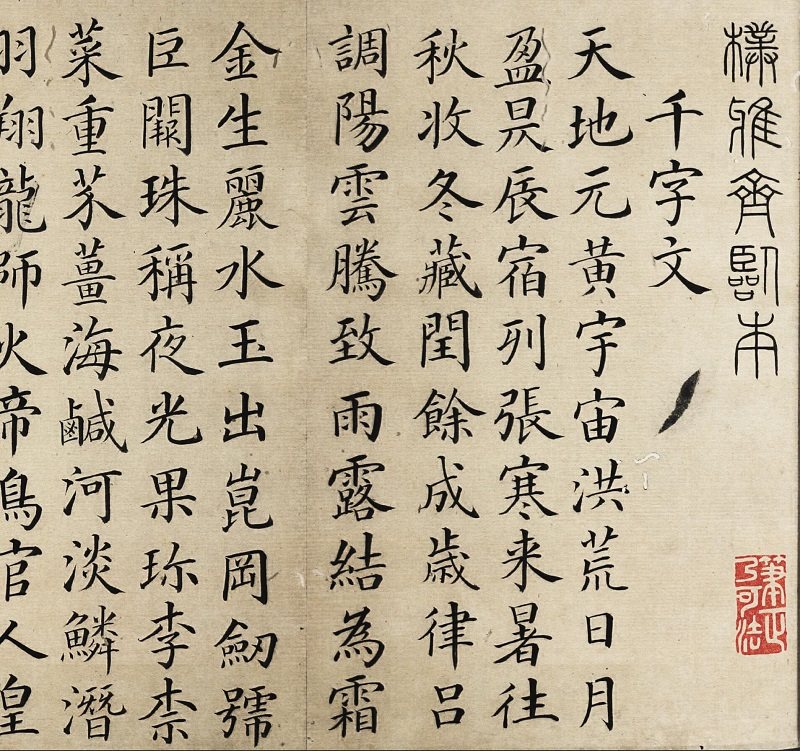 樸雅齊臨本
千字文
天地元黃宇宙洪荒日月
盈昃辰宿列張寒来暑往
秋收冬藏閏餘成歲律吕
調陽雲騰致雨露結為霜
金生麗水玉出崑岡劒號
巨闕珠稱夜光果珎李柰
菜重芥薑海鹹河淡鱗潛
羽翔龍師火帝鳥官人皇
筆正乃可法